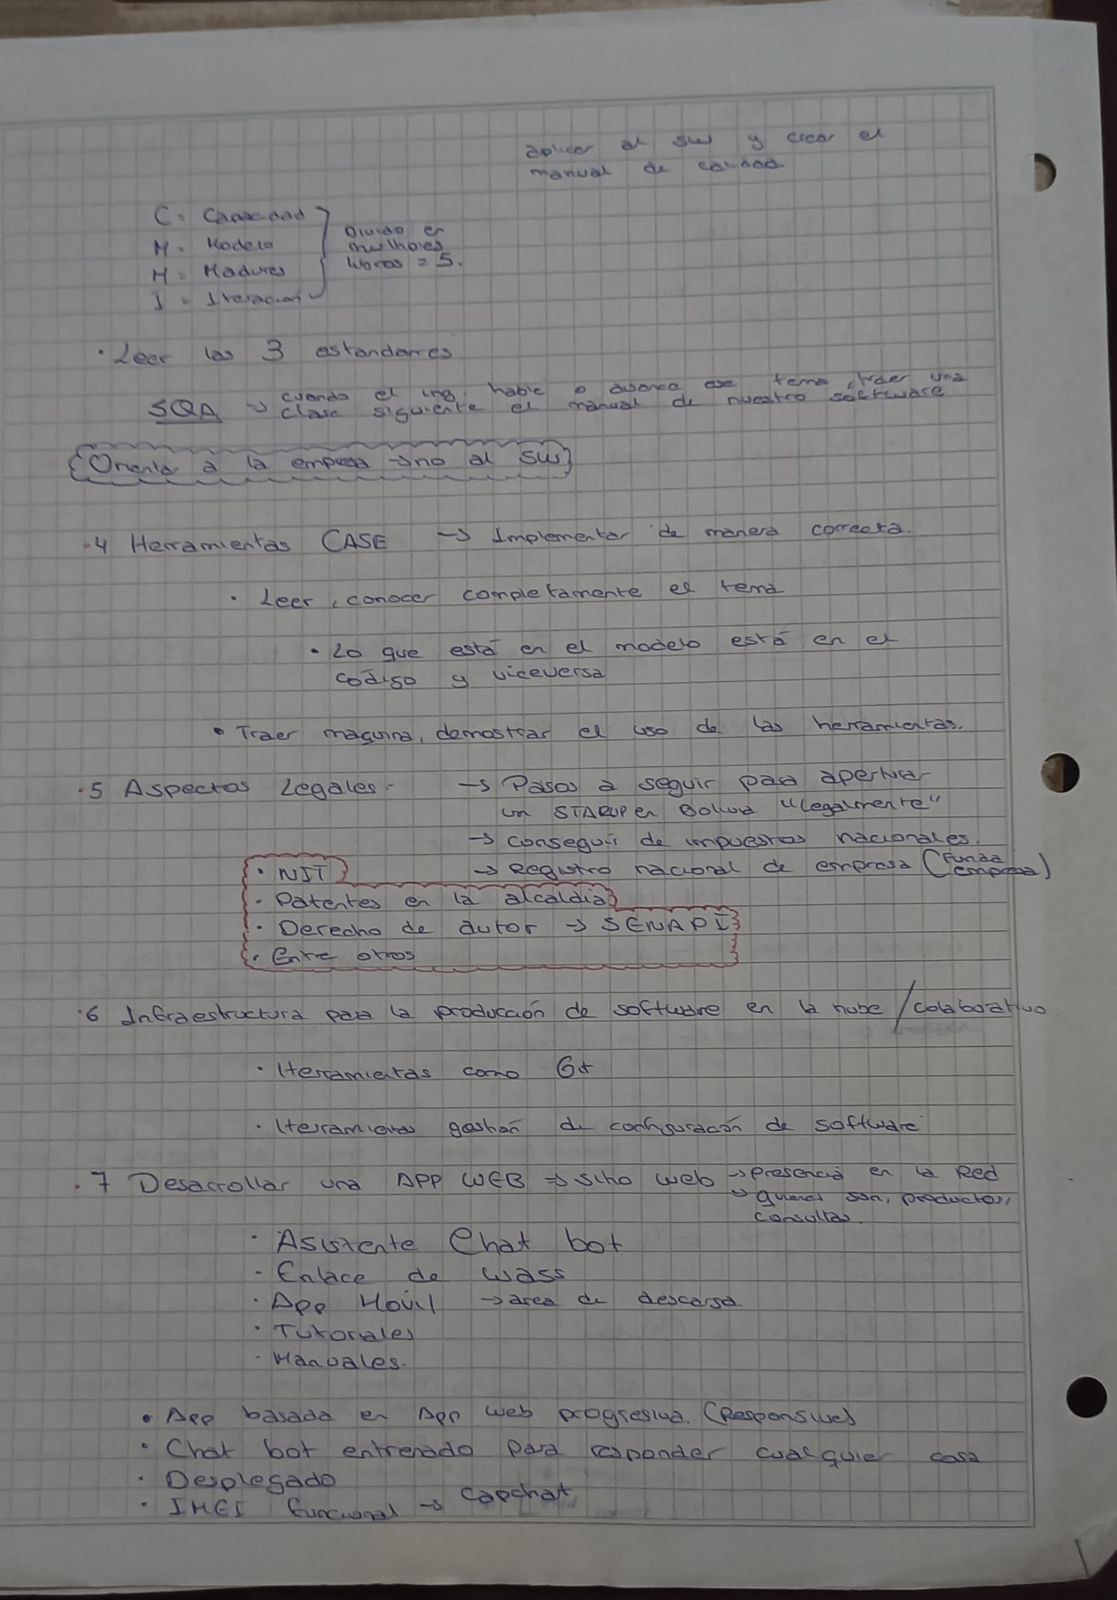 aplicar al sw y crear el
manual de calidad
C = Capacidad
M = Modelo
M = Madures
I = Iteración
Divido en
muchores
libros = 5.
· Leer las 3 estandares
SQA → cuando el ing. hable o avance ese tema, traer una
clase siguiente el manual de nuestro software
Orienta a la empresa → no al SW
·4 Herramientas CASE → Implementar de manera correcta.
· Leer, conocer completamente el tema
· Lo que está en el modelo está en el
código y viceversa
· Traer maquina, demostrar el uso de las herramientas.
·5 Aspectos Legales. → Pasos a seguir para aperturar
un STARUP en Bolivia "Legalmente"
→ conseguir de impuestos nacionales.
· NIT → Registro nacional de empresa (Funda empresa)
· Patentes en la alcaldia
· Derecho de autor → SENAPI
· Entre otros
·6 Infraestructura para la producción de software en la nube / colaborativo
· Herramientas como Git
· Herramientas gestión de configuración de software
·7 Desarrollar una APP WEB → sitio web → presencia en la Red
→ quienes son, productos,
consultas.
· Asistente Chat bot
· Enlace de wass
· App Movil → area de descarga
· Tutoriales
· Manuales.
· App basada en App web progresiva. (Responsive)
· Chat bot entrenado para responder cualquier cosa
· Desplegado
· IMEI funcional → capchat